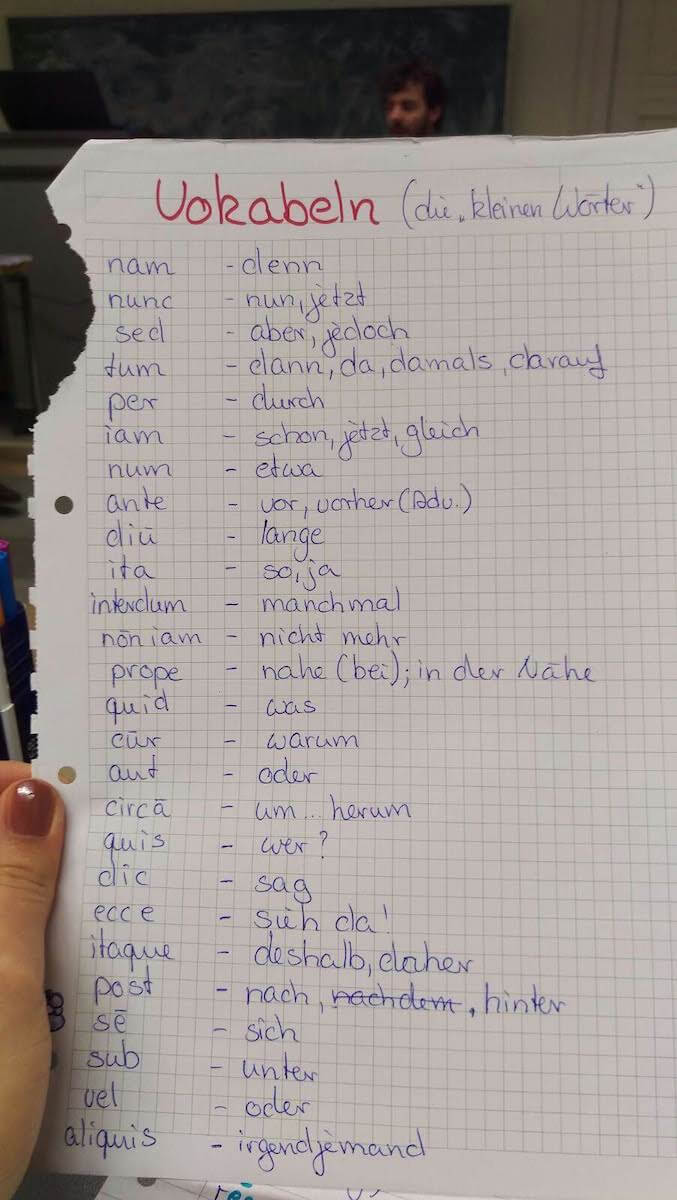 Vokabeln (die „kleinen Wörter“)
nam - denn
nunc - nun, jetzt
sed - aber, jedoch
tum - dann, da, damals, darauf
per - durch
iam - schon, jetzt, gleich
num - etwa
ante - vor, vorher (Adv.)
diū - lange
ita - so, ja
interdum - manchmal
nōn iam - nicht mehr
prope - nahe (bei); in der Nähe
quid - was
cūr - warum
aut - oder
circā - um... herum
quis - wer?
dic - sag
ecce - sieh da!
itaque - deshalb, daher
post - nach, nachdem, hinter
sē - sich
sub - unter
vel - oder
aliquis - irgendjemand